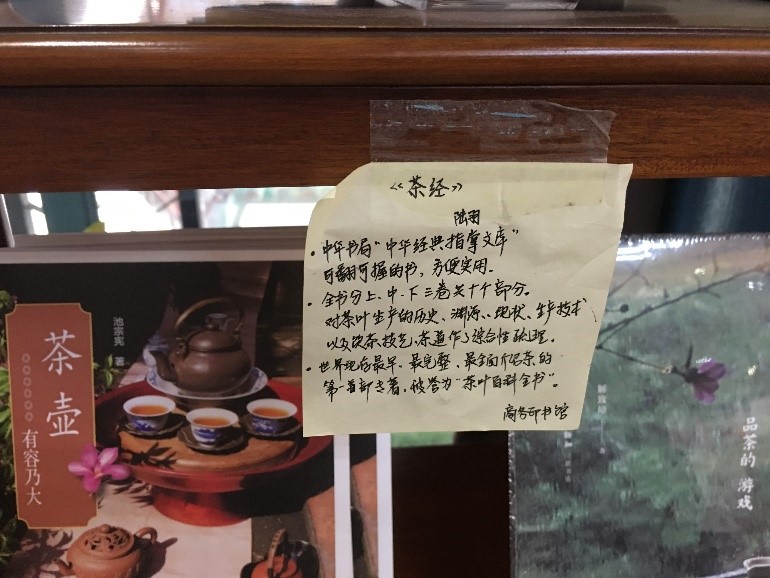 《茶经》
陆羽
· 中华书局“中华经典指掌文库”
可翻可握的书，方便实用。
· 全书分上、中、下三卷共十个部分。
对茶叶生产的历史、渊源、现状、生产技术
以及饮茶技艺，茶道作了综合性论理。
· 世界现存最早、最完整、最全面介绍茶的
第一首部专著，被誉为“茶叶百科全书”。
商务印书馆
茶壶
有容乃大
池宗宪 著
品茶的 游戏